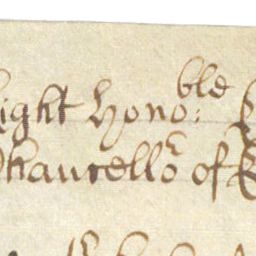 ight Hono:ble
Chancello.r of